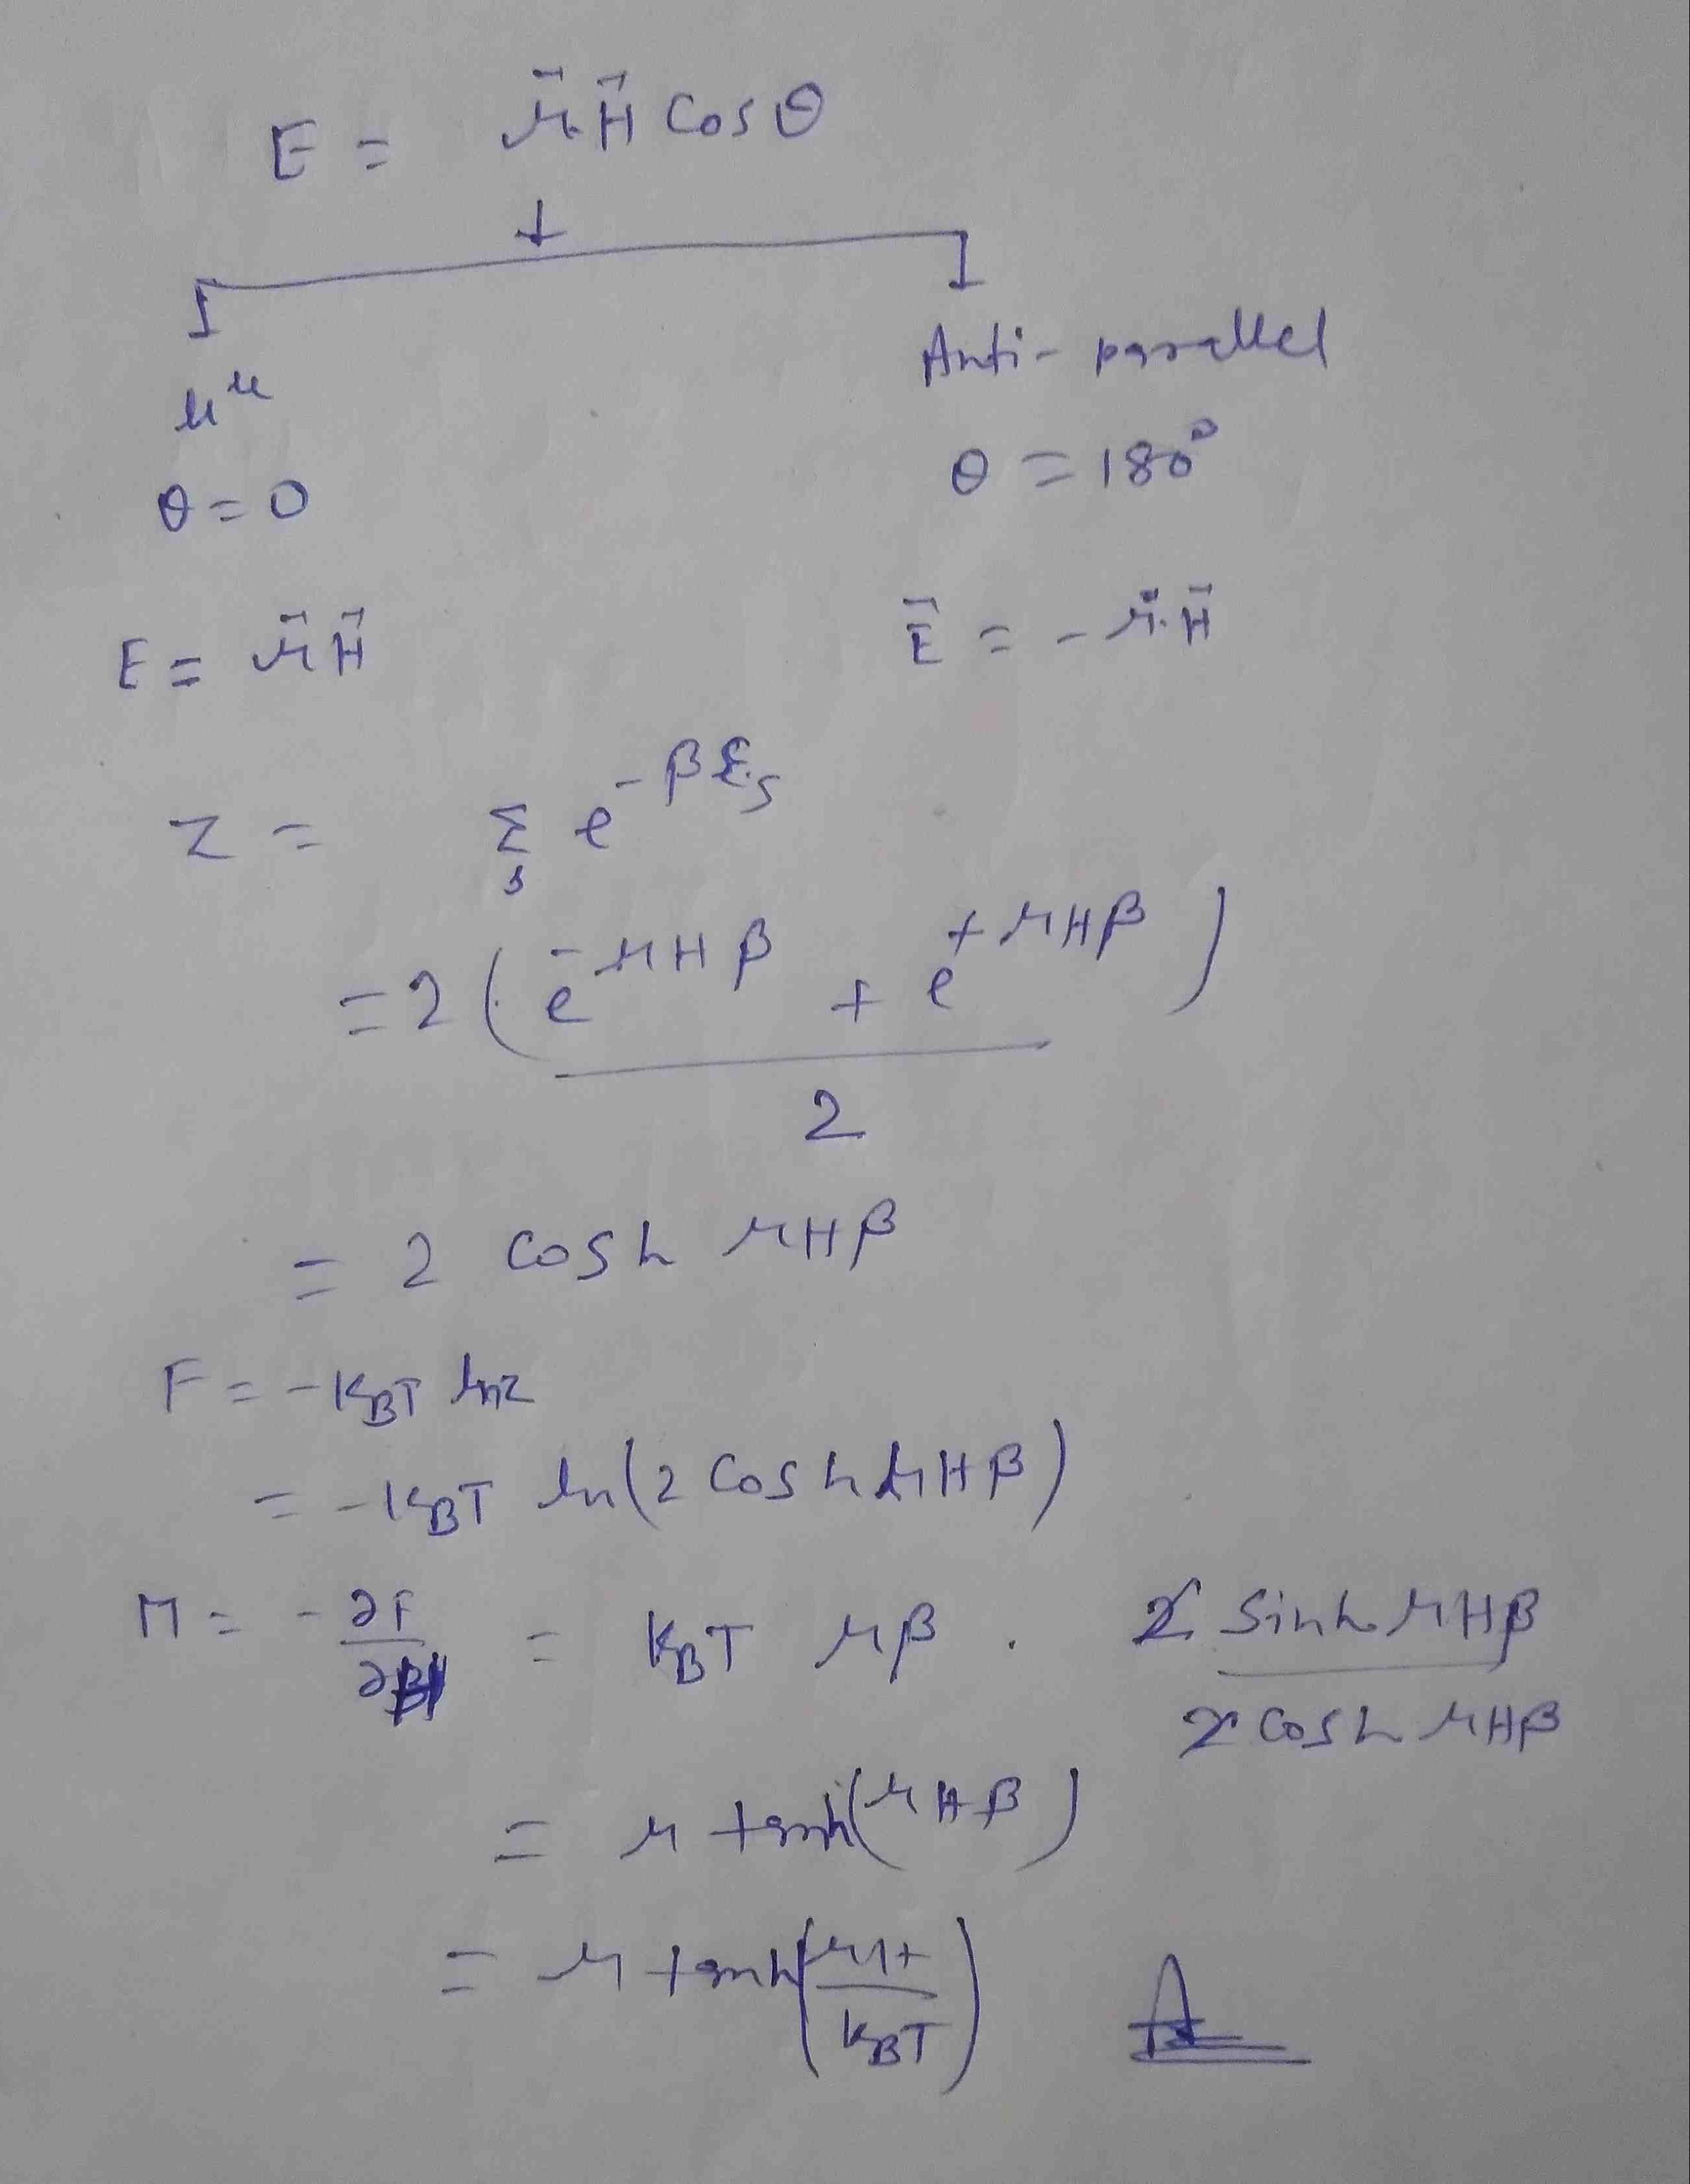 E = μ̄.H̄ Cos θ
↓
θ = 0
Anti-parallel
θ = 180°
E = μ̄ H̄
Ē = - μ̄.H̄
Z = Σ_s e^{-βE_s}
= 2 (e^{-μHβ} + e^{+μHβ}) / 2
= 2 cosh μHβ
F = -K_BT lnz
= -K_BT ln(2 Cosh μHβ)
M = -∂F/∂H = K_BT μβ . 2 Sinh μHβ / 2 Cosh μHβ
= μ tanh(μHβ)
= μ tanh(μH/K_BT)